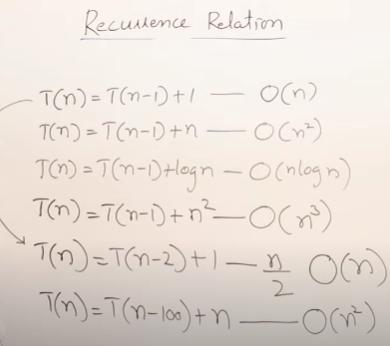 Recurrence Relation
T(n) = T(n-1)+1 — O(n)
T(n) = T(n-1)+n — O(n²)
T(n) = T(n-1)+logn — O(nlogn)
T(n) = T(n-1)+n² — O(n³)
T(n) = T(n-2)+1 — n/2 O(n)
T(n) = T(n-100)+n — O(n²)